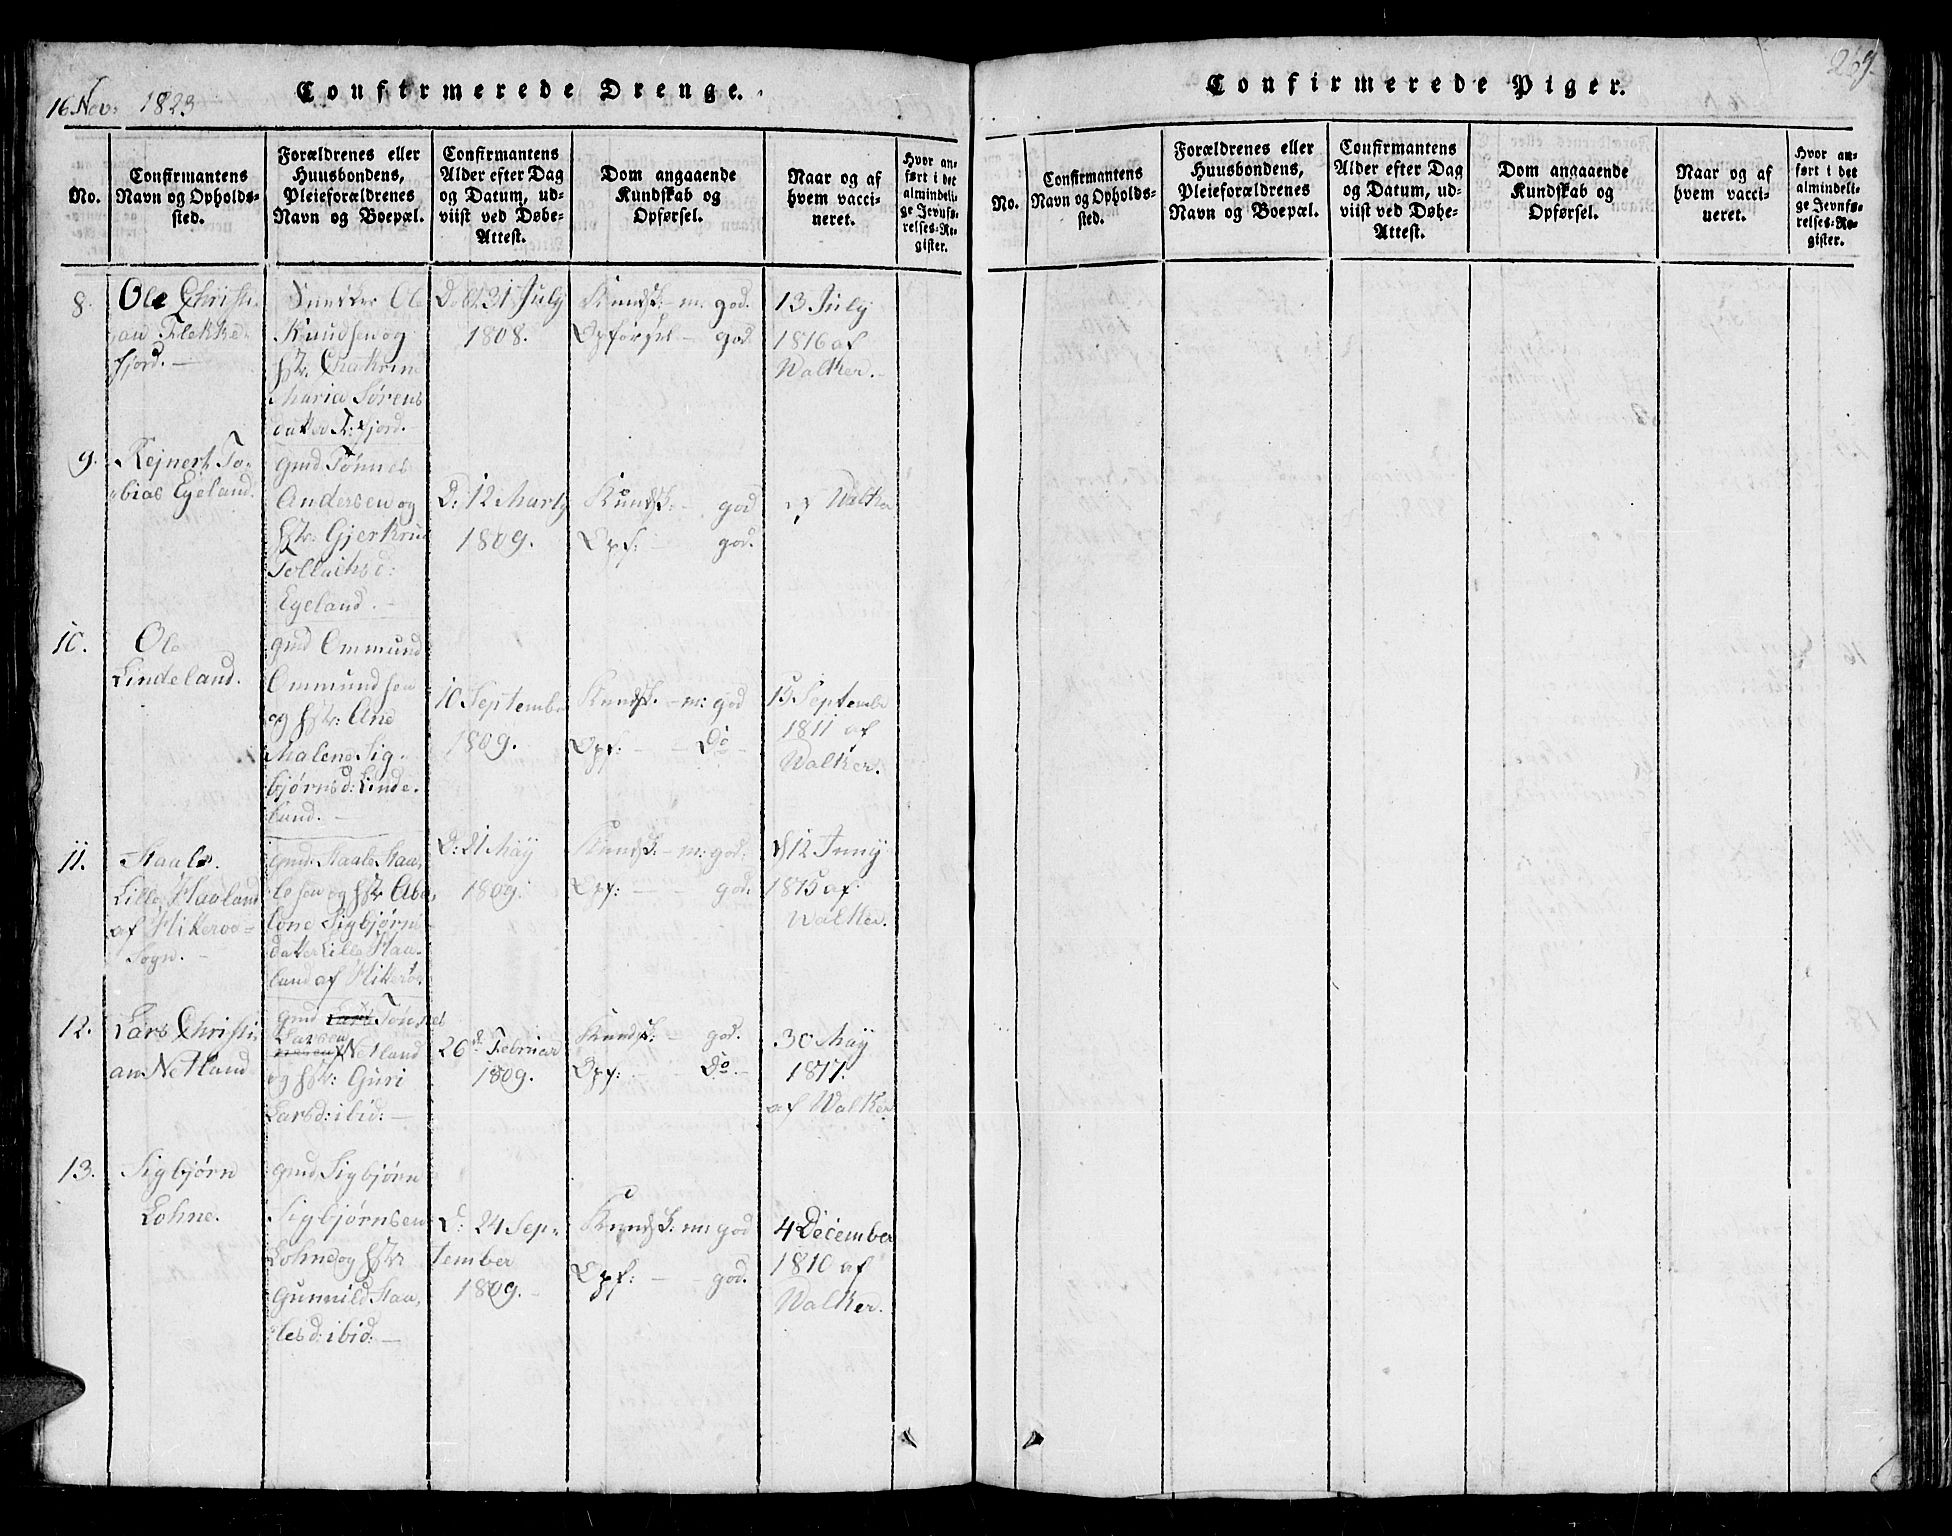 269.
16 Nov: 1823
Confirmerede Drenge.
No.
Confirmantens
Navn og Opholds-
sted.
Forældrenes eller
Huusbondens,
Pleieforældrenes
Navn og Boepæl.
Confirmantens
Alder efter Dag
og Datum, ud-
viist ved Døbe-
Attest.
Dom angaaende
Kundskab og
Opførsel.
Naar og af
hvem vacci-
neret.
Hvor an-
ført i det
almindeli-
ge Jevnfø-
relses-Re-
gister.
8.
Ole Christi-
an Flekke-
fjord. -
Ole
Knudsen og
Hstr. Chatrin
Maria Sørens
datter F:fjord.
D: 31 July
1808.
Kundsk: - m: god.
Opførsel - god.
13 July
1816 af
Walker. -
9.
Rejnert To-
bias Egeland.
gmd Tønnes
Andersen og
Hstr: Gjertrud
Tollachsd:
Egeland. -
D: 12 Marty
1809.
Kundsk: - god
Opf: - god.
Walker
10.
Ole
Lindeland.
gmd Ommund
Ommundsen
og Hstr: Ane
Malene Sig-
bjørnsd: Linde-
land. -
10 September
1809.
Kundsk. - m: god
Opf: - - Do -
15 Septembr
1811 af
Walker.
11.
Staale
Lille Haaland
af Hiterøe-
Sogn. -
gmd. Staale Staa-
lesen og Hstr Abe-
lone Sigbjørns-
datter Lille Haa-
land af Hiterøe.
D: 21 May
1809.
Kundsk: - m: god.
Opf: - - god.
12 Juny
1815 af
Walker.
12.
Lars Christi-
an Netland
gmd Lars Tønnes
Larsen
Netland
og Hstr: Guri
Larsd: ibid: -
26de Februar
1809.
Kundsk: - god.
Opf: - Do. -
30 May
1817.
af Walker
13.
Sigbjørn
Lohne.
gmd Sigbjørn
Sigbjørnsen
Lohne og Hstr:
Gunnild Staa-
lesd: ibid: -
D: 24 Sep-
tember
1809. -
Kundsk: m: god
Opf: - - god.
4 December
1810 af
Walker.
Confirmerede Piger.
No.
Confirmantens
Navn og Opholds-
sted.
Forældrenes eller
Huusbondens,
Pleieforældrenes
Navn og Boepæl.
Confirmantens
Alder efter Dag
og Datum, ud-
viist ved Døbe-
Attest.
Dom angaaende
Kundskab og
Opførsel.
Naar og af
hvem vacci-
neret.
Hvor an-
ført i det
almindeli-
ge Jevnfø-
relses-Re-
gister.